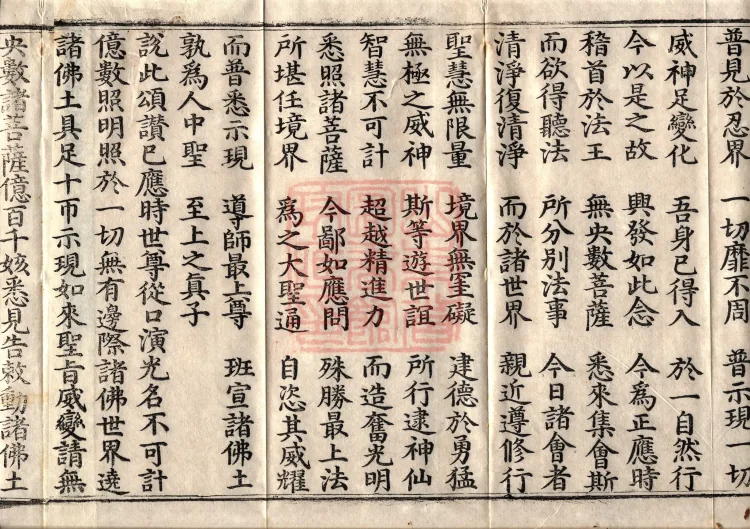 普見於忍界 一切靡不周 普示現一切
威神足變化 吾身已得入 於一自然行
今以是之故 興發如此念 今為正應時
稽首於法王 無央數菩薩 悉來集會斯
而欲得聽法 所分別法事 今日諸會者
清淨復清淨 而於諸世界 親近遵修行
聖慧無限量 境界無罣礙 建德於勇猛
無極之威神 斯等遊世誼 所行逮神仙
智慧不可計 超越精進力 而造奮光明
悉照諸菩薩 今鄙如應問 殊勝最上法
所堪任境界 為之大聖通 自恣其威耀
而普悉示現 導師最上尊 班宣諸佛土
孰為人中聖 至上之真子
說此頌讚已應時世尊從口演光名不可計
億數照明照於一切無有邊際諸佛世界遶
諸佛土具足十帀示現如來聖旨威變請無
央數諸菩薩億百千姟悉見告敕動諸佛土